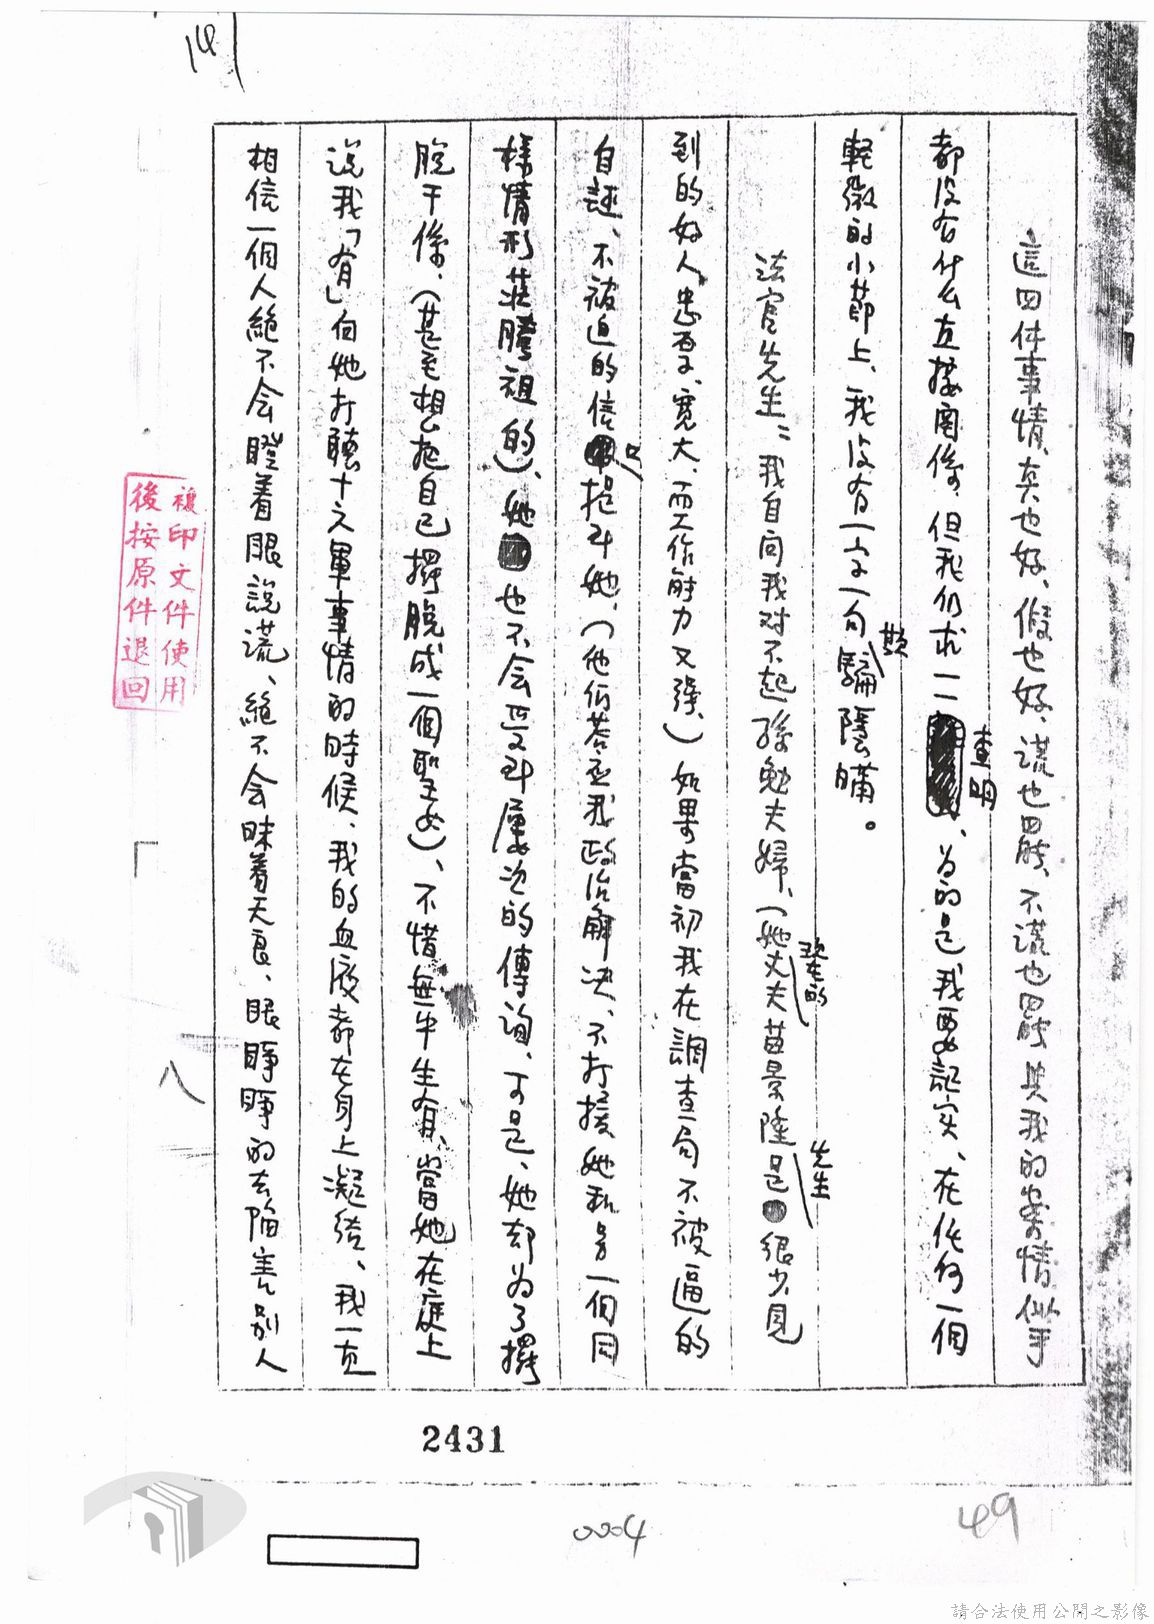 14
這四件事情,真也好、假也好、謊也罷、不謊也罷,與我的案情似乎
都沒有什么直接関係,但我们求一一查明、为的是我要記实、在任何一個
輕微的小節上、我沒有一字一句欺騙隱瞞。
法官先生:我自问我对不起孫勉夫婦、(她現在的丈夫苗景隆先生是很少見
到的好人,忠厚、寬大、而工作能力又強、)如果當初我在調查局不被逼的
自誣、不被迫的信口提到她、(他们答应我政治解决、不打擾她和另一個同
樣情形莊騰祖的)、她也不会受到屢次的傳詢、可是、她却为了擺
脫干係、(甚至想把自己擺脫成一個聖女)、不惜無中生有、當她在庭上
說我「有」向她打聽十六軍事情的時候、我的血液都在身上凝结、我一直
相信一個人絕不会瞪着眼說謊、絕不会昧着天良、眼睜睜的去陷害别人
複印文件使用
後按原件退回
八
2431
0004
49
請合法使用公開之影像